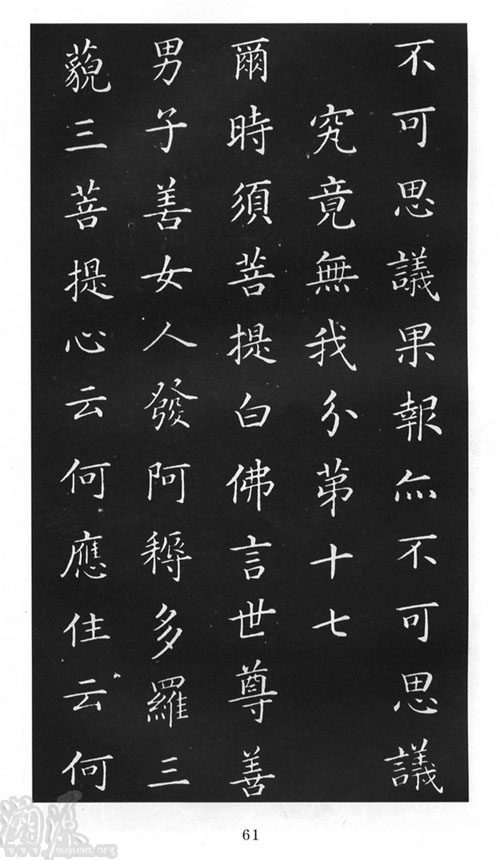 不可思議果報亦不可思議
究竟無我分第十七
爾時須菩提白佛言世尊善
男子善女人發阿耨多羅三
藐三菩提心云何應住云何
61
溯源
suyuan.org